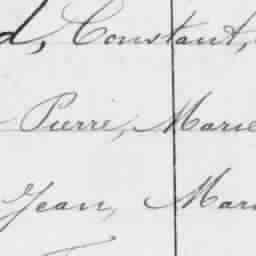 d, Constant,
Pierre, Marie
Jean, Mar